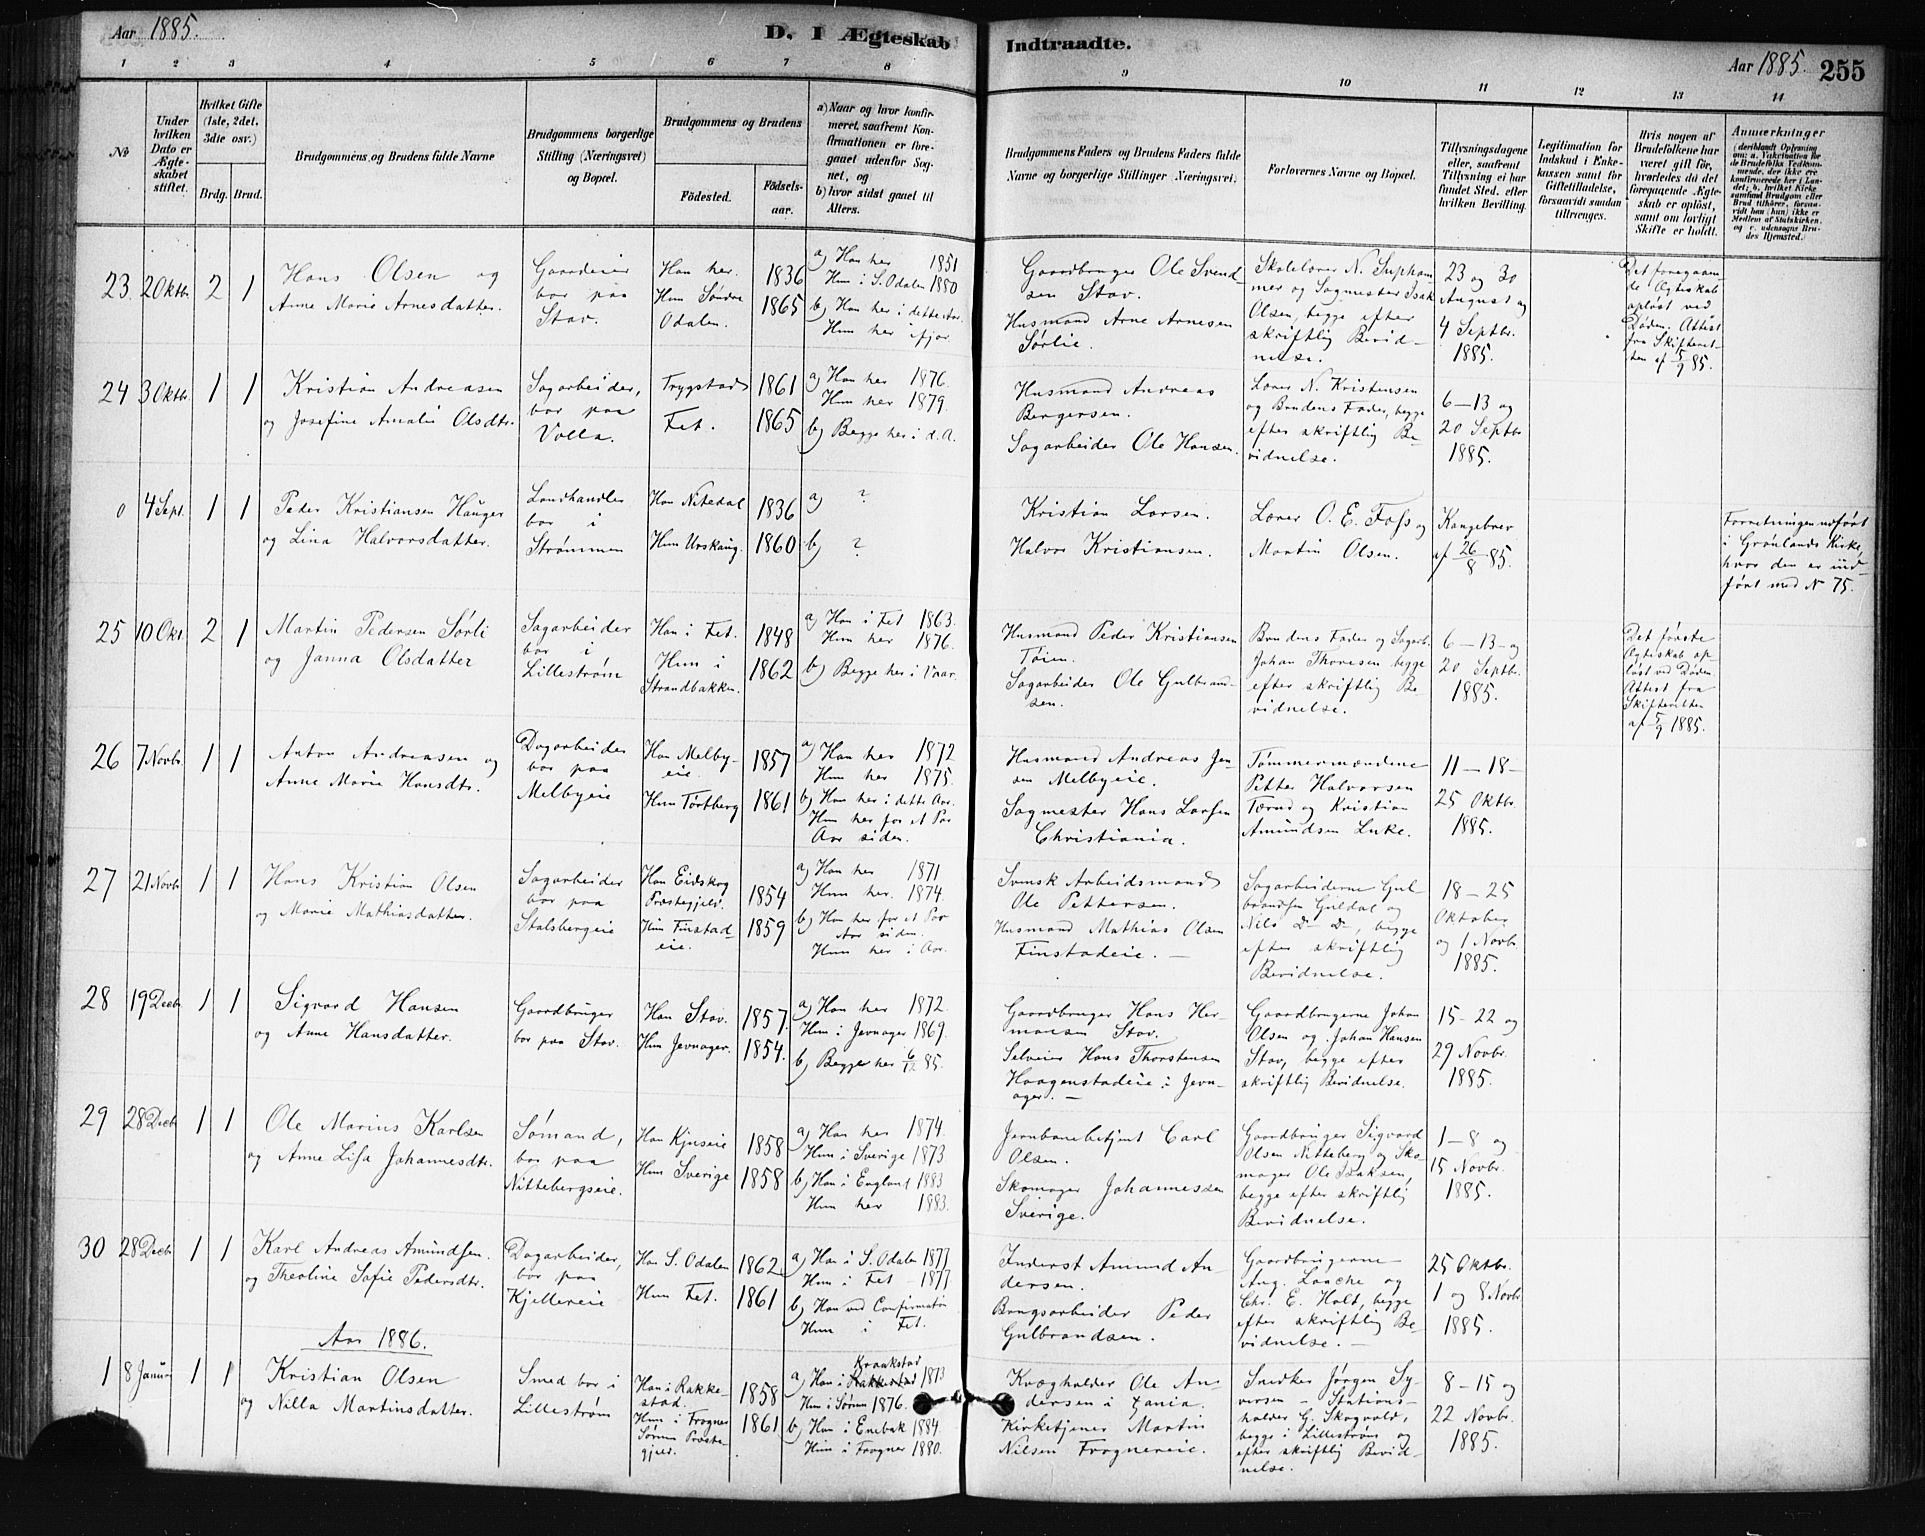 Aar 1885.
D. I Ægteskab
Indtraadte.
Aar 1885.
255
1 2 3 4 5 6 7 8 9 10 11 12 13 14
No
Under hvilken Dato er Ægteskabet stiftet.
Hvilket Gifte (1ste, 2det, 3die osv.)
Brdg. Brud.
Brudgommens og Brudens fulde Navne
Brudgommens borgerlige Stilling (Næringsvei) og Bopæl.
Brudgommens og Brudens
Fødested.
Fødselsaar.
a) Naar og hvor konfirmeret, saafremt Konfirmationen er foregaaet udenfor Sognet, og
b) hvor sidst gaaet til Alters.
Brudgommens Faders og Brudens Faders fulde Navne og borgerlige Stillinger (Næringsvei).
Forlovernes Navne og Bopæl.
Tillysningsdagene eller, saafremt Tillysning ei har fundet Sted, efter hvilken Bevilling
Legitimation for Indskud i Enkekassen samt for Giftetilladelse, forsaavidt saadan tiltrænges.
Hvis nogen af Brudefolkene har været gift før, hvorledes da det foregaaende Ægteskab er opløst, samt om lovligt Skifte er holdt.
Anmærkninger
23 2 Oktb. 2 1
Hans Olsen og
Anne Marie Arnesdatter.
Gaardeier
bor paa
Stav.
Han her. 1836
Hun Søndre Odalen. 1865
a) Han her 1851
Hun i S. Odalen 1880
b) Han her i dette Aar.
Hun her ifjor.
Gaardbruger Ole Svendsen Stav.
Husmand Arne Arnesen Sørlie.
Skolelærer N. Suphammer og Sagmester Isak Olsen, begge efter skriftlig Bevidnelse.
23 og 30
August og
4 Septbr.
1885.
Det foregaaende Ægteskab opløst ved Døden. Attest fra Skifteretten af 5/9 85.
24 3 Oktb. 1 1
Kristian Andreasen
og Josefine Amalie Olsdtr.
Sagarbeider,
bor paa
Volla.
Trygstad 1861
Fet. 1865
a) Han her 1876.
Hun her 1879.
b) Begge her i d. A.
Husmand Andreas Bergersen.
Sagarbeider Ole Hansen.
Lærer N. Kristensen
og Brudens Fader, begge
efter skriftlig Bevidnelse.
6-13 og
20 Septbr
1885.
0 4 Sept. 1 1
Peder Kristiansen Hauger
og Lina Halvorsdatter.
Landhandler
bor i
Strømmen
Han Nitedal 1836
Hun Urskoug. 1860
a) ?
b) ?
Kristian Larsen.
Halvor Kristiansen.
Lærer O. E. Foss og
Martin Olsen.
Kongebrev
af 26/8 85.
Forretningen udført
i Grønlands Kirke,
hvor den er indført med N 75.
25 10 Okt. 2 1
Martin Pedersen Sørli
og Janna Olsdatter
Sagarbeider
bor i
Lillestrøm
Han i Fet. 1848
Hun i Strandbakken. 1862
a) Han i Fet 1863.
Hun her 1876.
b) Begge her i Vaar.
Husmand Peder Kristiansen
Tøien.
Sagarbeider Ole Gulbrandsen.
Brudens Fader og Sagarb.
Johan Thoresen begge
efter skriftlig Bevidnelse.
6-13- og
20 Septbr.
1885.
Det første
Ægteskab opløst ved Døden
Attest fra
Skifteretten
af 5/9 1885.
26 7 Novbr. 1 1
Anton Andreasen og
Anne Marie Hansdtr.
Dagarbeider
bor paa
Melbyeie
Han Melbyeie 1857
Hun Tørtberg 1861
a) Han her 1872
Hun her 1875.
b) Han her i dette Aar.
Hun her for et Par
Aar siden.
Husmand Andreas Jensen Melbyeie.
Sagmester Hans Larsen
Christiania.
Tømmermændene
Petter Halvorsen
Tærud og Kristian
Amundsen Luke.
11-18-
25 Oktbr.
1885.
27 21 Novbr 1 1
Hans Kristian Olsen
og Marie Mathiasdatter.
Sagarbeider
bor paa
Stalsbergeie
Han Eidskog
Præstegjeld. 1854
Hun Finstadeie. 1859
a) Han her 1871
Hun her. 1874.
b) Han her for et Par
Aar siden.
Hun her i Aar.
Svensk Arbeidsmand
Ole Pettersen.
Husmand Mathias Olsen
Finstadeie. -
Sagarbeiderne Gulbrandsen Guldal og
Nils Do Do, begge
efter skriftlig
Bevidnelse.
18-25
Oktober
og 1 Novbr.
1885.
28 19 Decb. 1 1
Sigvard Hansen
og Anne Hansdatter.
Gaardbruger
bor paa Stav.
Han Stav. 1857.
Hun Jevnager. 1854.
a) Han her 1872.
Hun i Jevnager 1869.
b) Begge her 6/12 85.
Gaardbruger Hans Hermansen Stav.
Selveier Hans Thorstensen
Haagenstadeie i Jevnager. -
Gaardbrugerne Johan
Olsen og Johan Hansen
Stav, begge efter
skriftlig Bevidnelse.
15-22 og
29 Novbr.
1885.
29 28 Decb. 1 1
Ole Marius Karlsen
og Anne Lisa Johannesdtr.
Sømand,
bor paa
Nittebergseie.
Han Kjuseie 1858
Hun Sverige 1858
a) Han her 1874
Hun i Sverige 1873
b) Han i England 1883
Hun her 1883.
Jernbanebetjent Carl
Olsen.
Skomager Johannessen
Sverige.
Gaardbruger Sigvard
Olsen Nitteberg og Skomager Ole Isaksen,
begge efter skriftlig
Bevidnelse.
1-8 og
15 Novbr.
1885.
30 28 Decb. 1 1
Karl Andreas Amundsen.
og Theoline Sofie Pedersdtr.
Dagarbeider,
bor paa
Kjellereie
Han S. Odalen 1862
Hun Fet. 1861
a) Han i S. Odalen 1877
Hun i Fet - 1877
b) Han ved Confirmation
Hun i Fet.
Inderst Amund Andersen.
Brugsarbeider Peder
Gulbrandsen.
Gaardbrugerne
Aug. Laache og
Chr. E. Holt, begge
efter skriftlig Bevidnelse. -
25 Oktbr.
1 og 8 Novbr.
1885.
Aar 1886.
1 8 Januar 1 1
Kristian Olsen
og Nilla Martinsdatter.
Smed bor i
Lillestrøm
Han i Rakkestad. 1858
Hun i Frogner
Sørum Præstegjeld. 1861
Kraakstad
a) Han i Rakkestad 1873
Hun i Sørum 1876.
b) Han i Enebak 1884.
Hun i Frogner 1880.
Kvægholder Ole Andersen i Zania.
Kirketjener Martin
Nilsen Frognereie.
Snedker Jørgen Syversen - Stationsholder G. Skogvold,
begge i Lillestrøm og
efter skriftlig Bevidnelse.
8-15 og
22 Novbr.
1885.